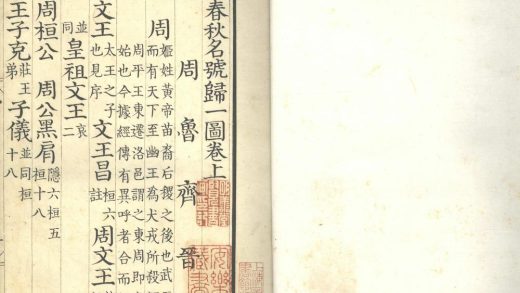 春秋名號歸一圖卷上
周 魯 齊 晉
周 姬姓黃帝苗裔后稷之後也武
而有天下至幽王為犬戎所殺
周平王東遷洛邑謂之東周即
始也今據經傳有異呼者合而
文王 太王之子也見序 文王昌 桓六註 周文王
並同 皇祖文王 哀
周桓公 周公黑肩 隱六桓五桓十八
王子克 莊王弟 子儀 並同桓十八